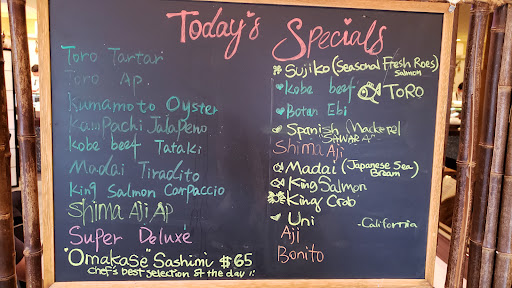 Today's Specials
Toro Tartar
Toro Ap.
Kumamoto Oyster
Kampachi Jalapeno
Kobe beef Tataki
Madai Tiradito
King Salmon Carpaccio
Shima Aji AP
Super Deluxe
"Omakase" Sashimi $65
chef's best selection of the day
Sujiko (Seasonal Fresh Roes)
Salmon
Kobe beef
TORO
Botan Ebi
Spanish Mackerel
SAWARA
Shima Aji
Madai (Japanese Sea)
Bream
King Salmon
King Crab
Uni -California
Aji
Bonito